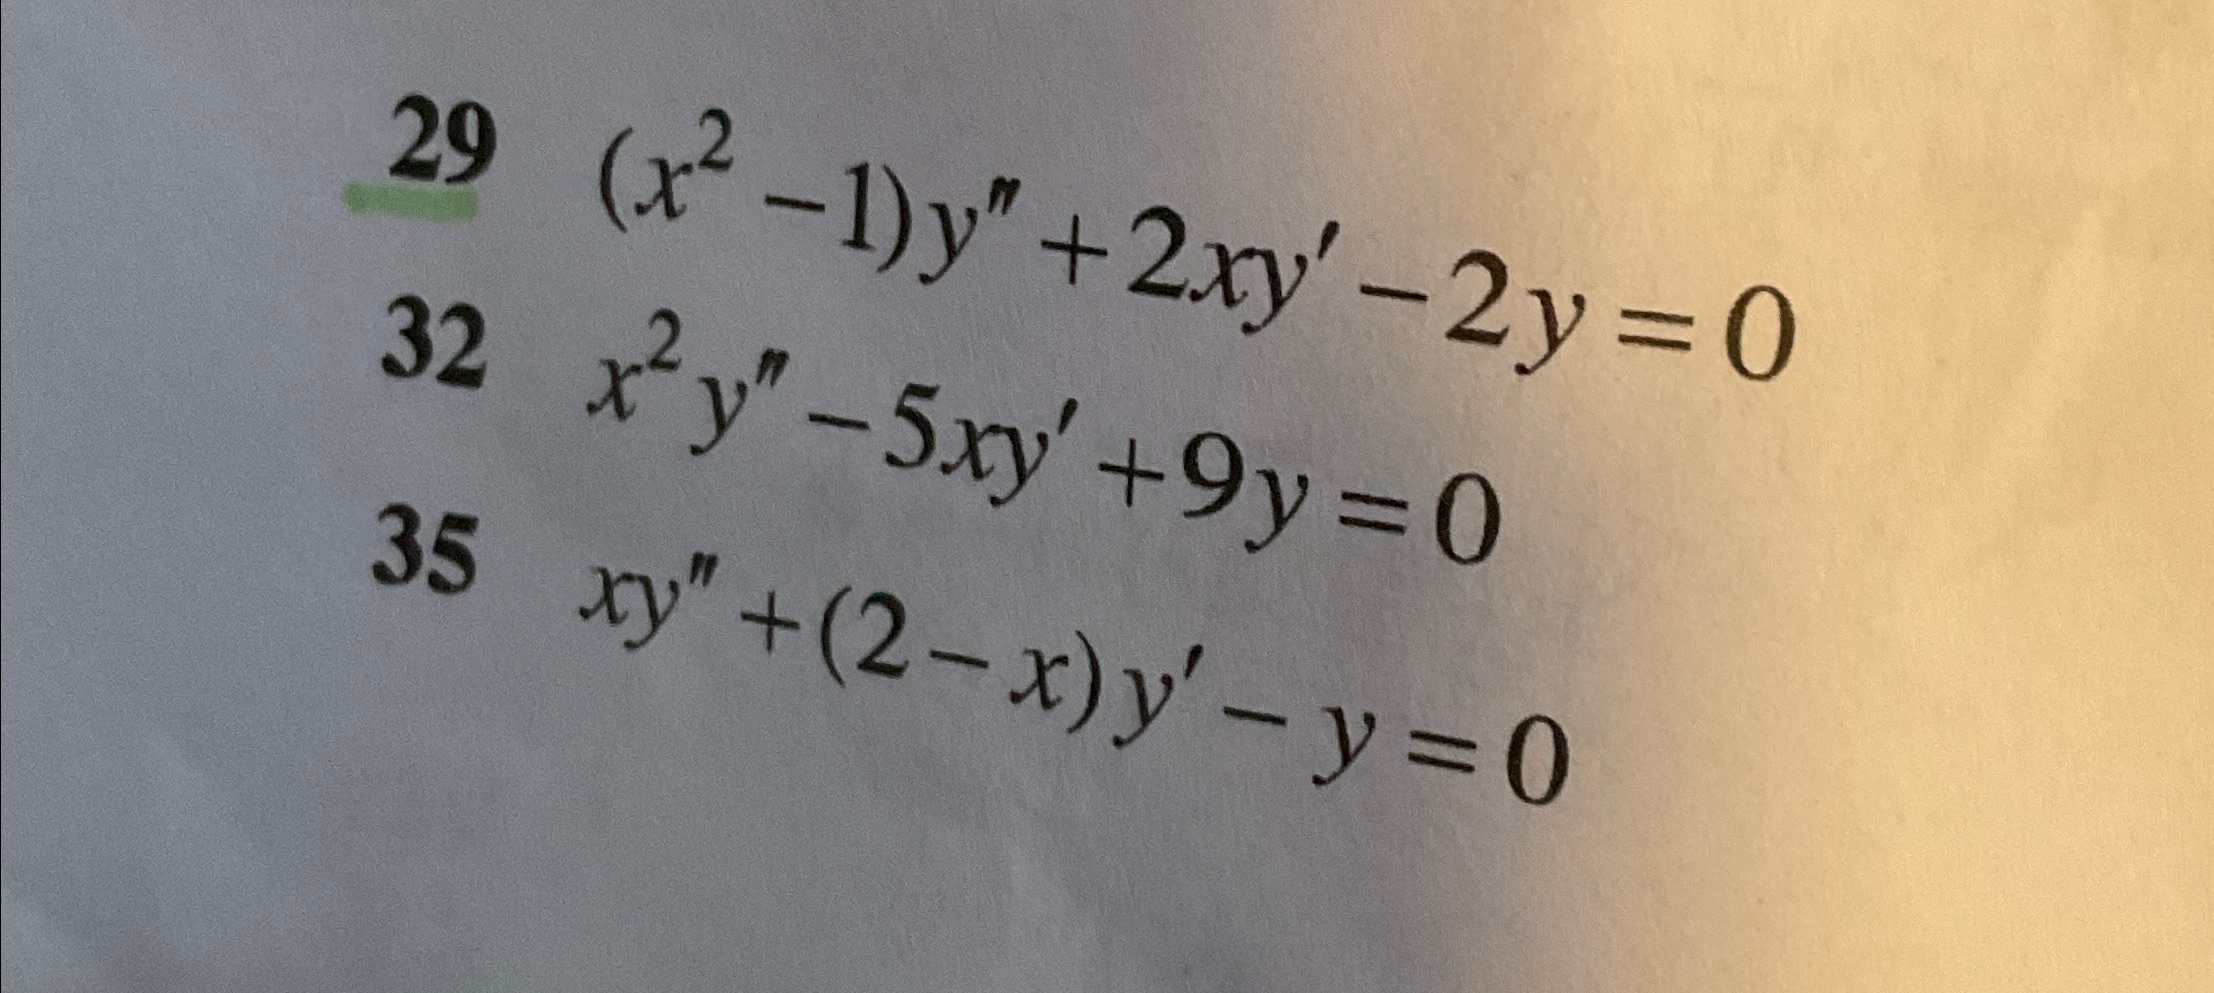 29 (x² − 1)y″ + 2xy′ − 2y = 0
32 x²y″ − 5xy′ + 9y = 0
35 xy″ + (2 − x)y′ − y = 0